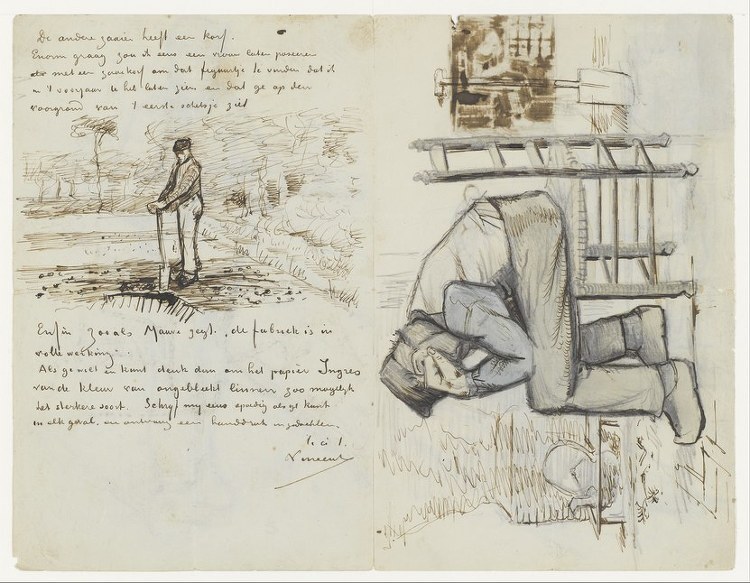 De andere zaaier heeft een korf.
Enorm graag zou ik eens een vrouw laten poseeren
met een zaaikorf om dat figuurtje te vinden dat ik
U 't voorjaar heb laten zien en dat ge op den
voorgrond van 't eerste schetsje ziet
Enfin zooals Mauve zegt, de fabriek is in
volle werking.
Als ge wilt en kunt denk dan om het papier Ingres
van de kleur van ongebleekt linnen zoo mogelijk
het sterkere soort. Schrijf mij eens spoedig als ge kunt
in elk geval, en ontvang een handdruk in gedachten.
t. à t.
Vincent